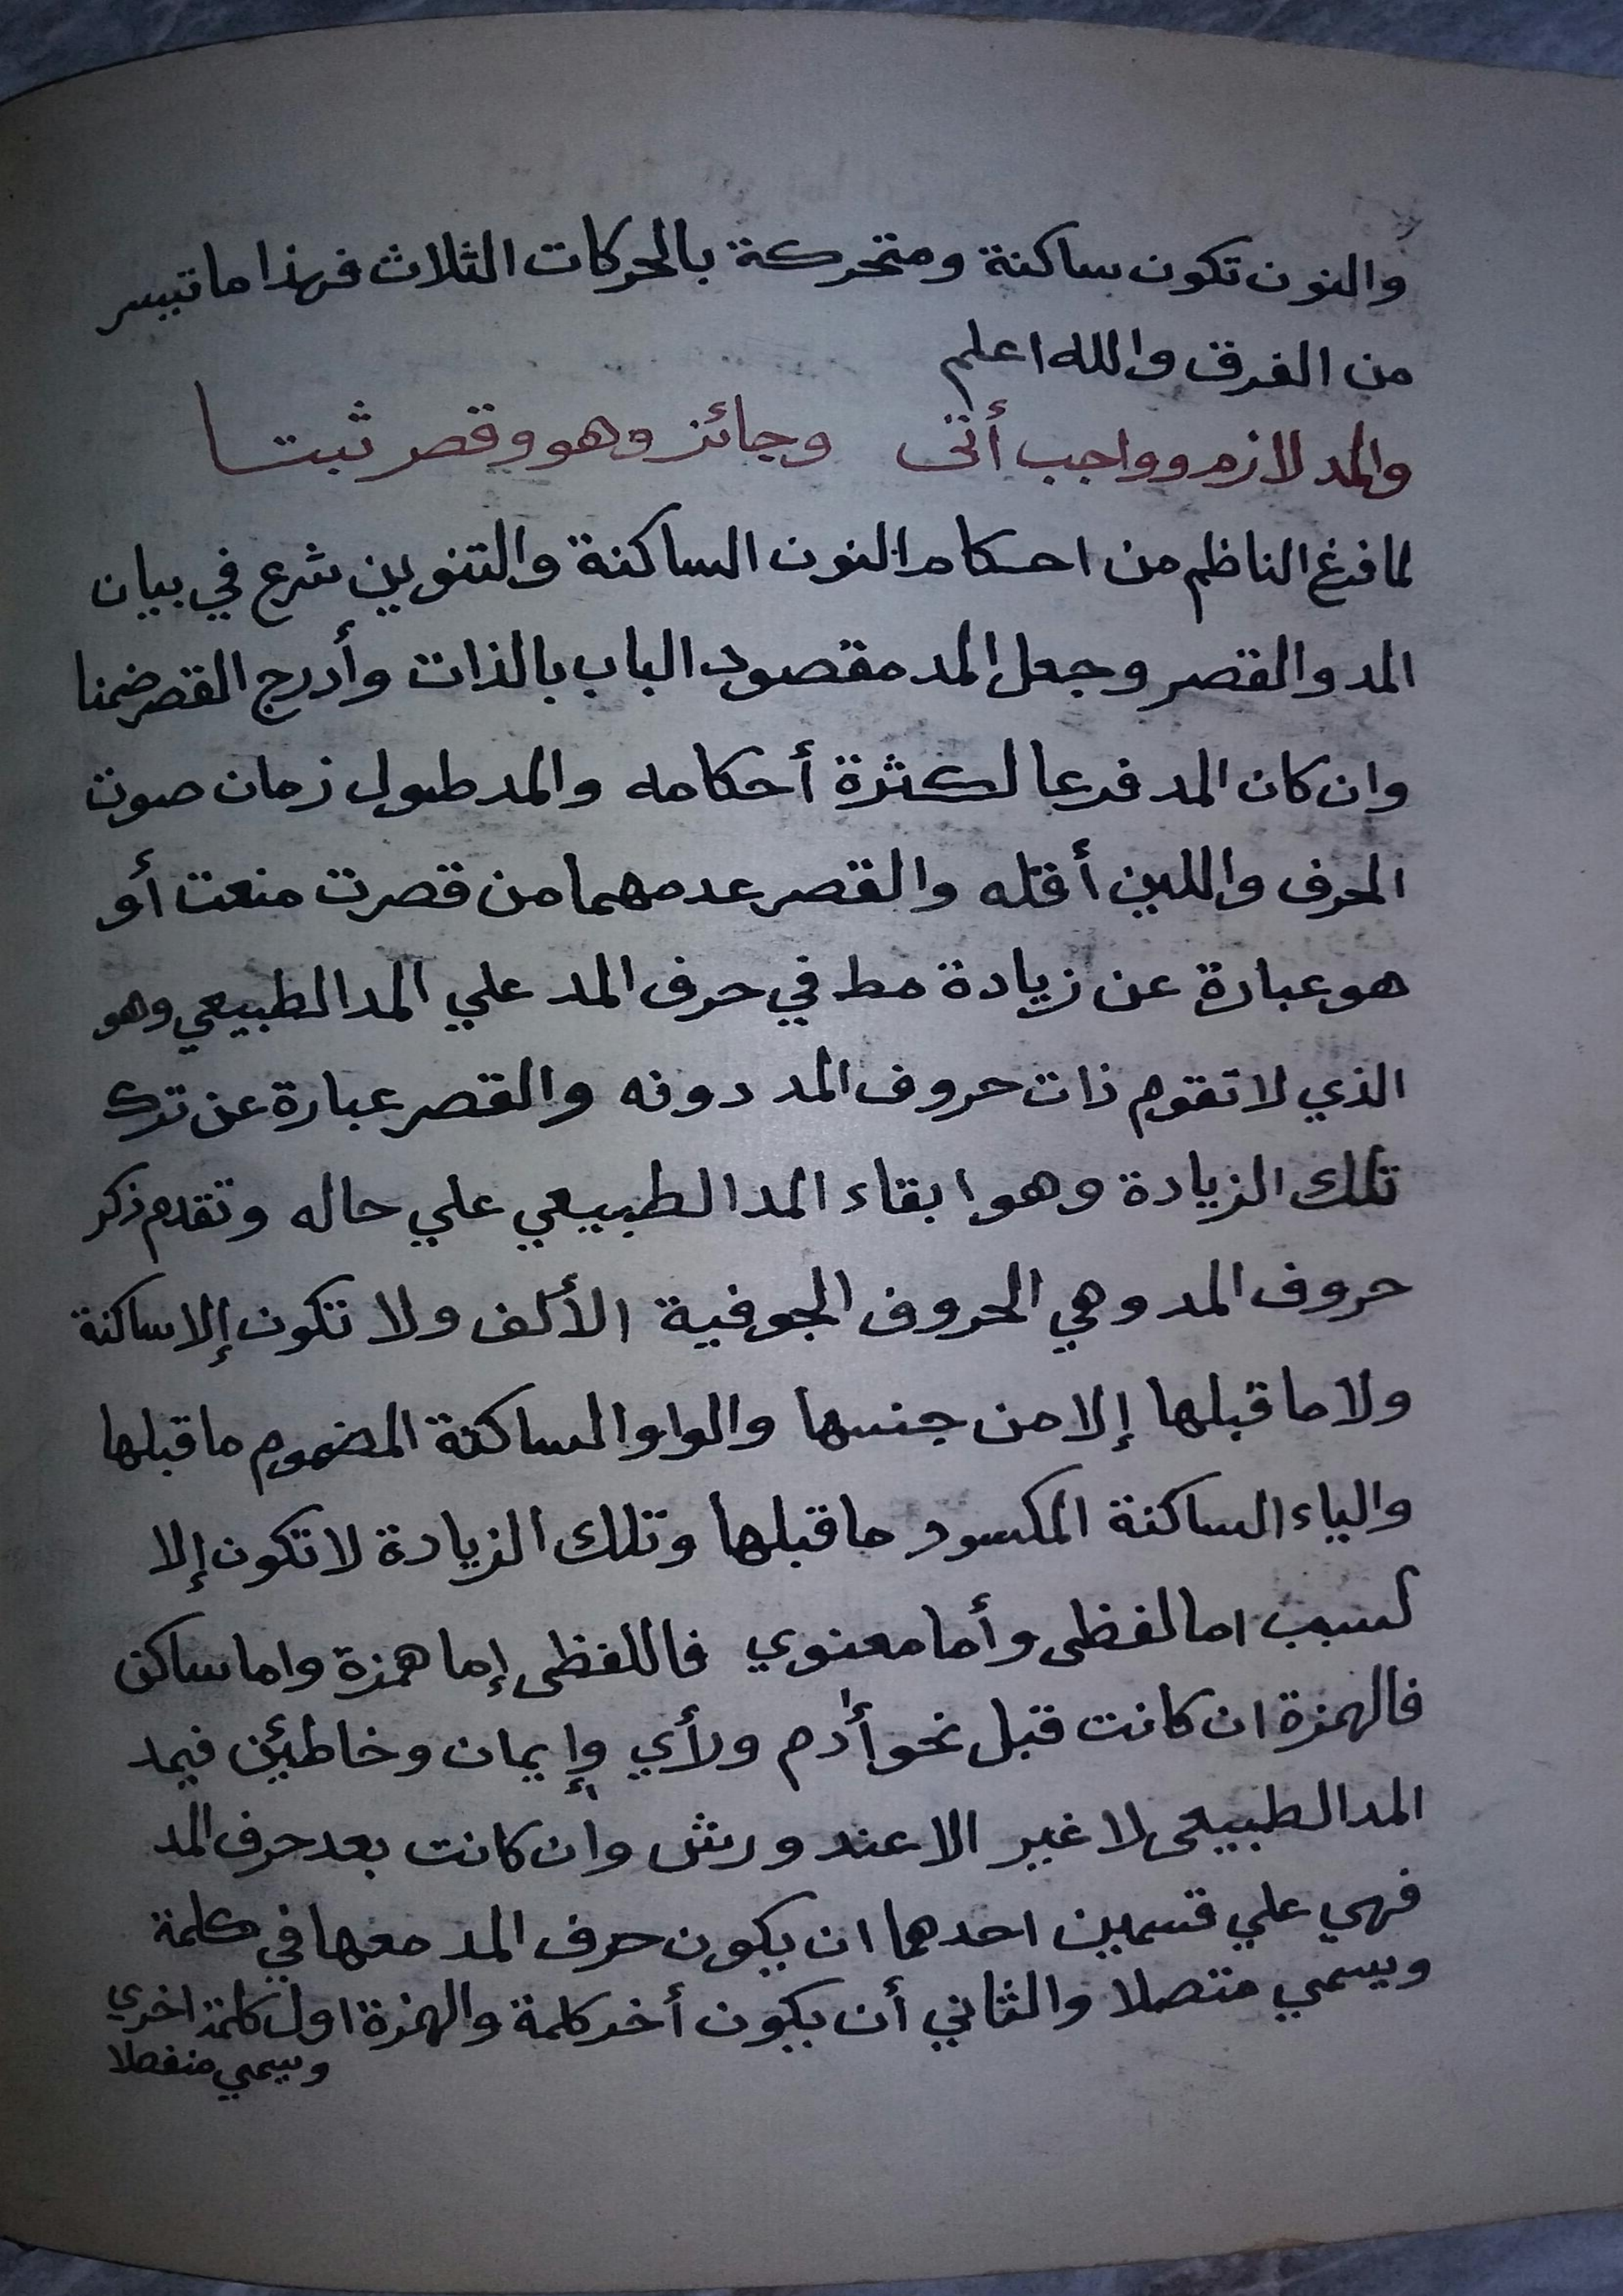 والنون تكون ساكنة ومتحركة بالحركات الثلاث فهذا ما تيسر
من الفرق والله اعلم
والمد لازم وواجب أتى وجائز وهو وقصر ثبتا
لما فرغ الناظم من احكام النون الساكنة والتنوين شرع في بيان
المد والقصر وجعل المد مقصود الباب بالذات وأدرج القصر ضمنا
وان كان المد فرعا لكثرة أحكامه والمد طول زمان صوت
الحرف واللين أقله والقصر عدمهما من قصرت منعت أو
هو عبارة عن زيادة مط في حرف المد علي المد الطبيعي وهو
الذي لا تقوم ذات حروف المد دونه والقصر عبارة عن ترك
تلك الزيادة وهو ابقاء المد الطبيعي علي حاله وتقدم ذكر
حروف المد وهي الحروف الجوفية الألف ولا تكون إلا ساكنة
ولا ما قبلها إلا من جنسها والواو الساكنة المضموم ما قبلها
والياء الساكنة المكسود ما قبلها وتلك الزيادة لا تكون إلا
لسبب اما لفظى وأما معنوي فاللفظى إما همزة واما ساكن
فالهمزة ان كانت قبل نحو أادم ورأي وإيمان وخاطئين فيمد
المد الطبيعى لا غير الا عند ورش وان كانت بعد حرف المد
فهي علي قسمين احدهما ان يكون حرف المد معها في كلمة
ويسمي متصلا والثاني أن يكون أخر كلمة والهمزة اول كلمة اخري
ويسمي منفصلا